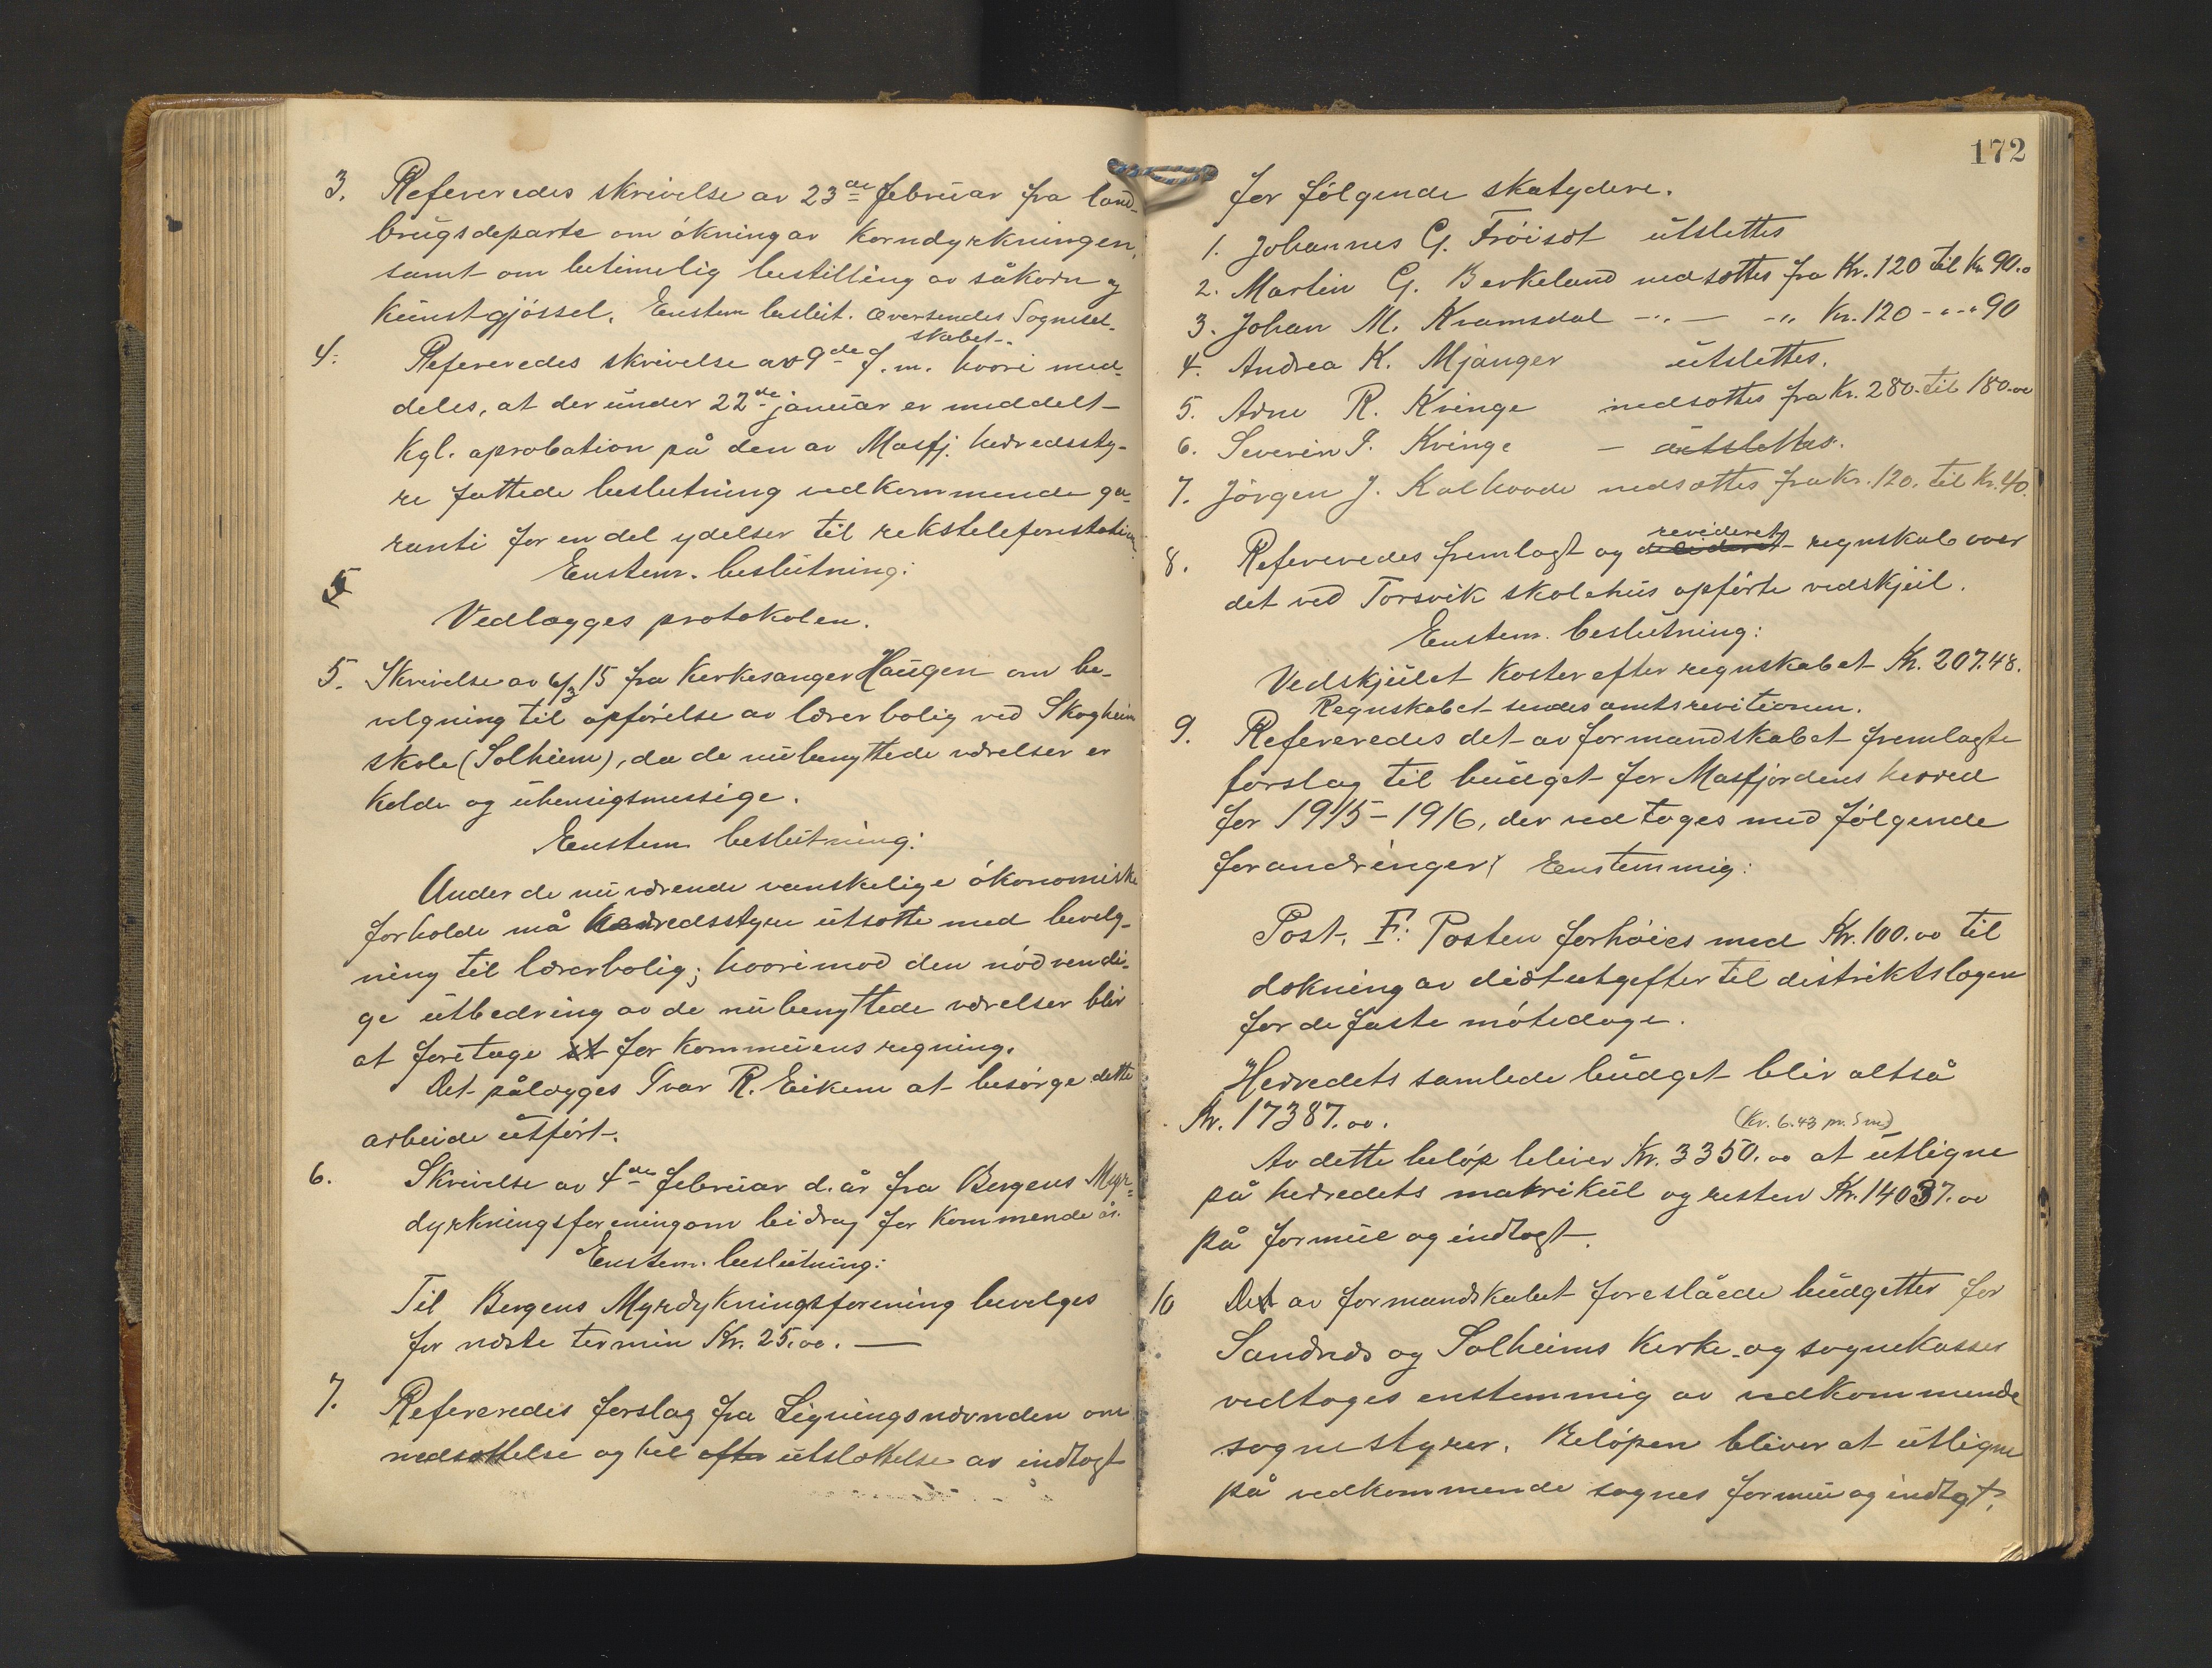 3. Refereredes skrivelse av 23de februar fra land-
brugsdeparte om økning av korndyrkningen,
samt om betimelig bestilling av såkorn og
kunstgjøssel. Enstem beslut. Oversendes Sognesel-
skabet.
4. Refereredes skrivelse av 9de f. m. hvori med-
deles, at der under 22de januar er meddelt
kgl. aprobation på den av Masfj. herredssty-
re fattede beslutning vedkommende ga-
ranti for en del ydelser til rikstelefonstation
Enstem. beslutning:
Vedlægges protokolen.
5. Skrivelse av 6/3 15 fra kirkesanger Haugen om be-
velgning til opførelse av lærerbolig ved Skogheim
skole (Solheim), da de nu benyttede værelser er
kolde og uhensigsmessige.
Enstem beslutning:
Under de nuværende vanskelige økonomiske
forholde må herredsstyre utsætte med bevelg-
ning til lærerbolig; hvorimod den nødvendi-
ge utbedring av de nu benyttede værelser blir
at foretage for kommunens regning.
Det pålægges Ivar R. Eikem at besørge dette
arbeide utført.
6. Skrivelse av 4de februar d. år fra Bergens Myr-
dyrkningsforening om bidrag for kommende år.
Enstem. beslutning:
Til Bergens Myrdykningsforening bevelges
for næste termin Kr. 25.00. —
7. Refereredes forslag fra Ligningsnævnden om
nedsættelse og hel efter utslættelse av indtægt
172
for følgende skatydere.
1. Johannes G. Frøiset utslettes
2. Martin G. Berkeland nedsættes fra Kr. 120 til kr 90.00
3. Johan M. Kramsdal -"- — -" Kr. 120 -"-" 90
4. Andrea K. Mjanger utslettes.
5. Arne R. Kvinge nedsættes fra Kr. 280. til 180.00
6. Severin I. Kvinge — utslettes.
7. Jørgen J. Kalhovde nedsættes fra Kr. 120. til Kr. 40.
revideret
8. Refereredes fremlagt og regnskab over
det ved Torsvik skolehus opførte vedskjul.
Enstem. beslutning:
Vedskjulet koster efter regnskabet Kr. 207.48.
Regnskabet sendes amtsrevitionen.
9. Refereredes det av formandskabet fremlagte
forslag til budget for Masfjordens herred
for 1915–1916, der vedtoges med følgende
forandringer: Enstemmig:
Post. F: Posten forhøies med Kr. 100.00 til
dækning av diætutgefter til distriktslægen
for de faste møtedage.
Herredets samlede budget blir altså
Kr. 17387.00.
(Kr. 6.43 pr. Sm)
Av dette beløp bliver Kr. 3350.00 at utligne
på herredets matrikul og resten Kr. 14037.00
på formue og indtægt.
10 Det av formandskabet foreslåede budgetter for
Sandnæs og Solheims kirke- og sognekasser
vedtoges enstemmig av vedkommende
sognestyrer. Beløpen bliver at utligne
på vedkommende sognes formue og indtægt.